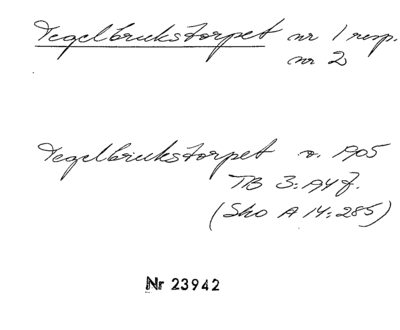 Tegelbrukstorpet nr 1 resp.
nr 2
Tegelbrukstorpet v. 1905
TB 3:1947.
(Sko A 14:285)
Nr 23942